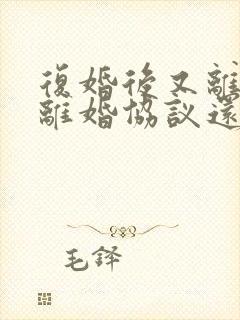 復婚後又離
離婚協議還
毛鐸